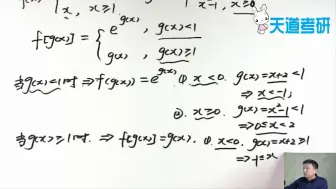 x, x≥1
x-1, x≥0
天道考研
f[g(x)] = { e^{g(x)}, g(x)<1
g(x), g(x)≥1
当g(x)<1时 ⇒ f(g(x))=e^{g(x)} ①. x<0. g(x)=x+2<1
⇒ x<-1;
②. x≥0. g(x)=x²-1<1
⇒ 0≤x<√2
当g(x)≥1时. ⇒ f[g(x)]=g(x). ①. x<0. g(x)=x+2≥1
⇒ -1≤x